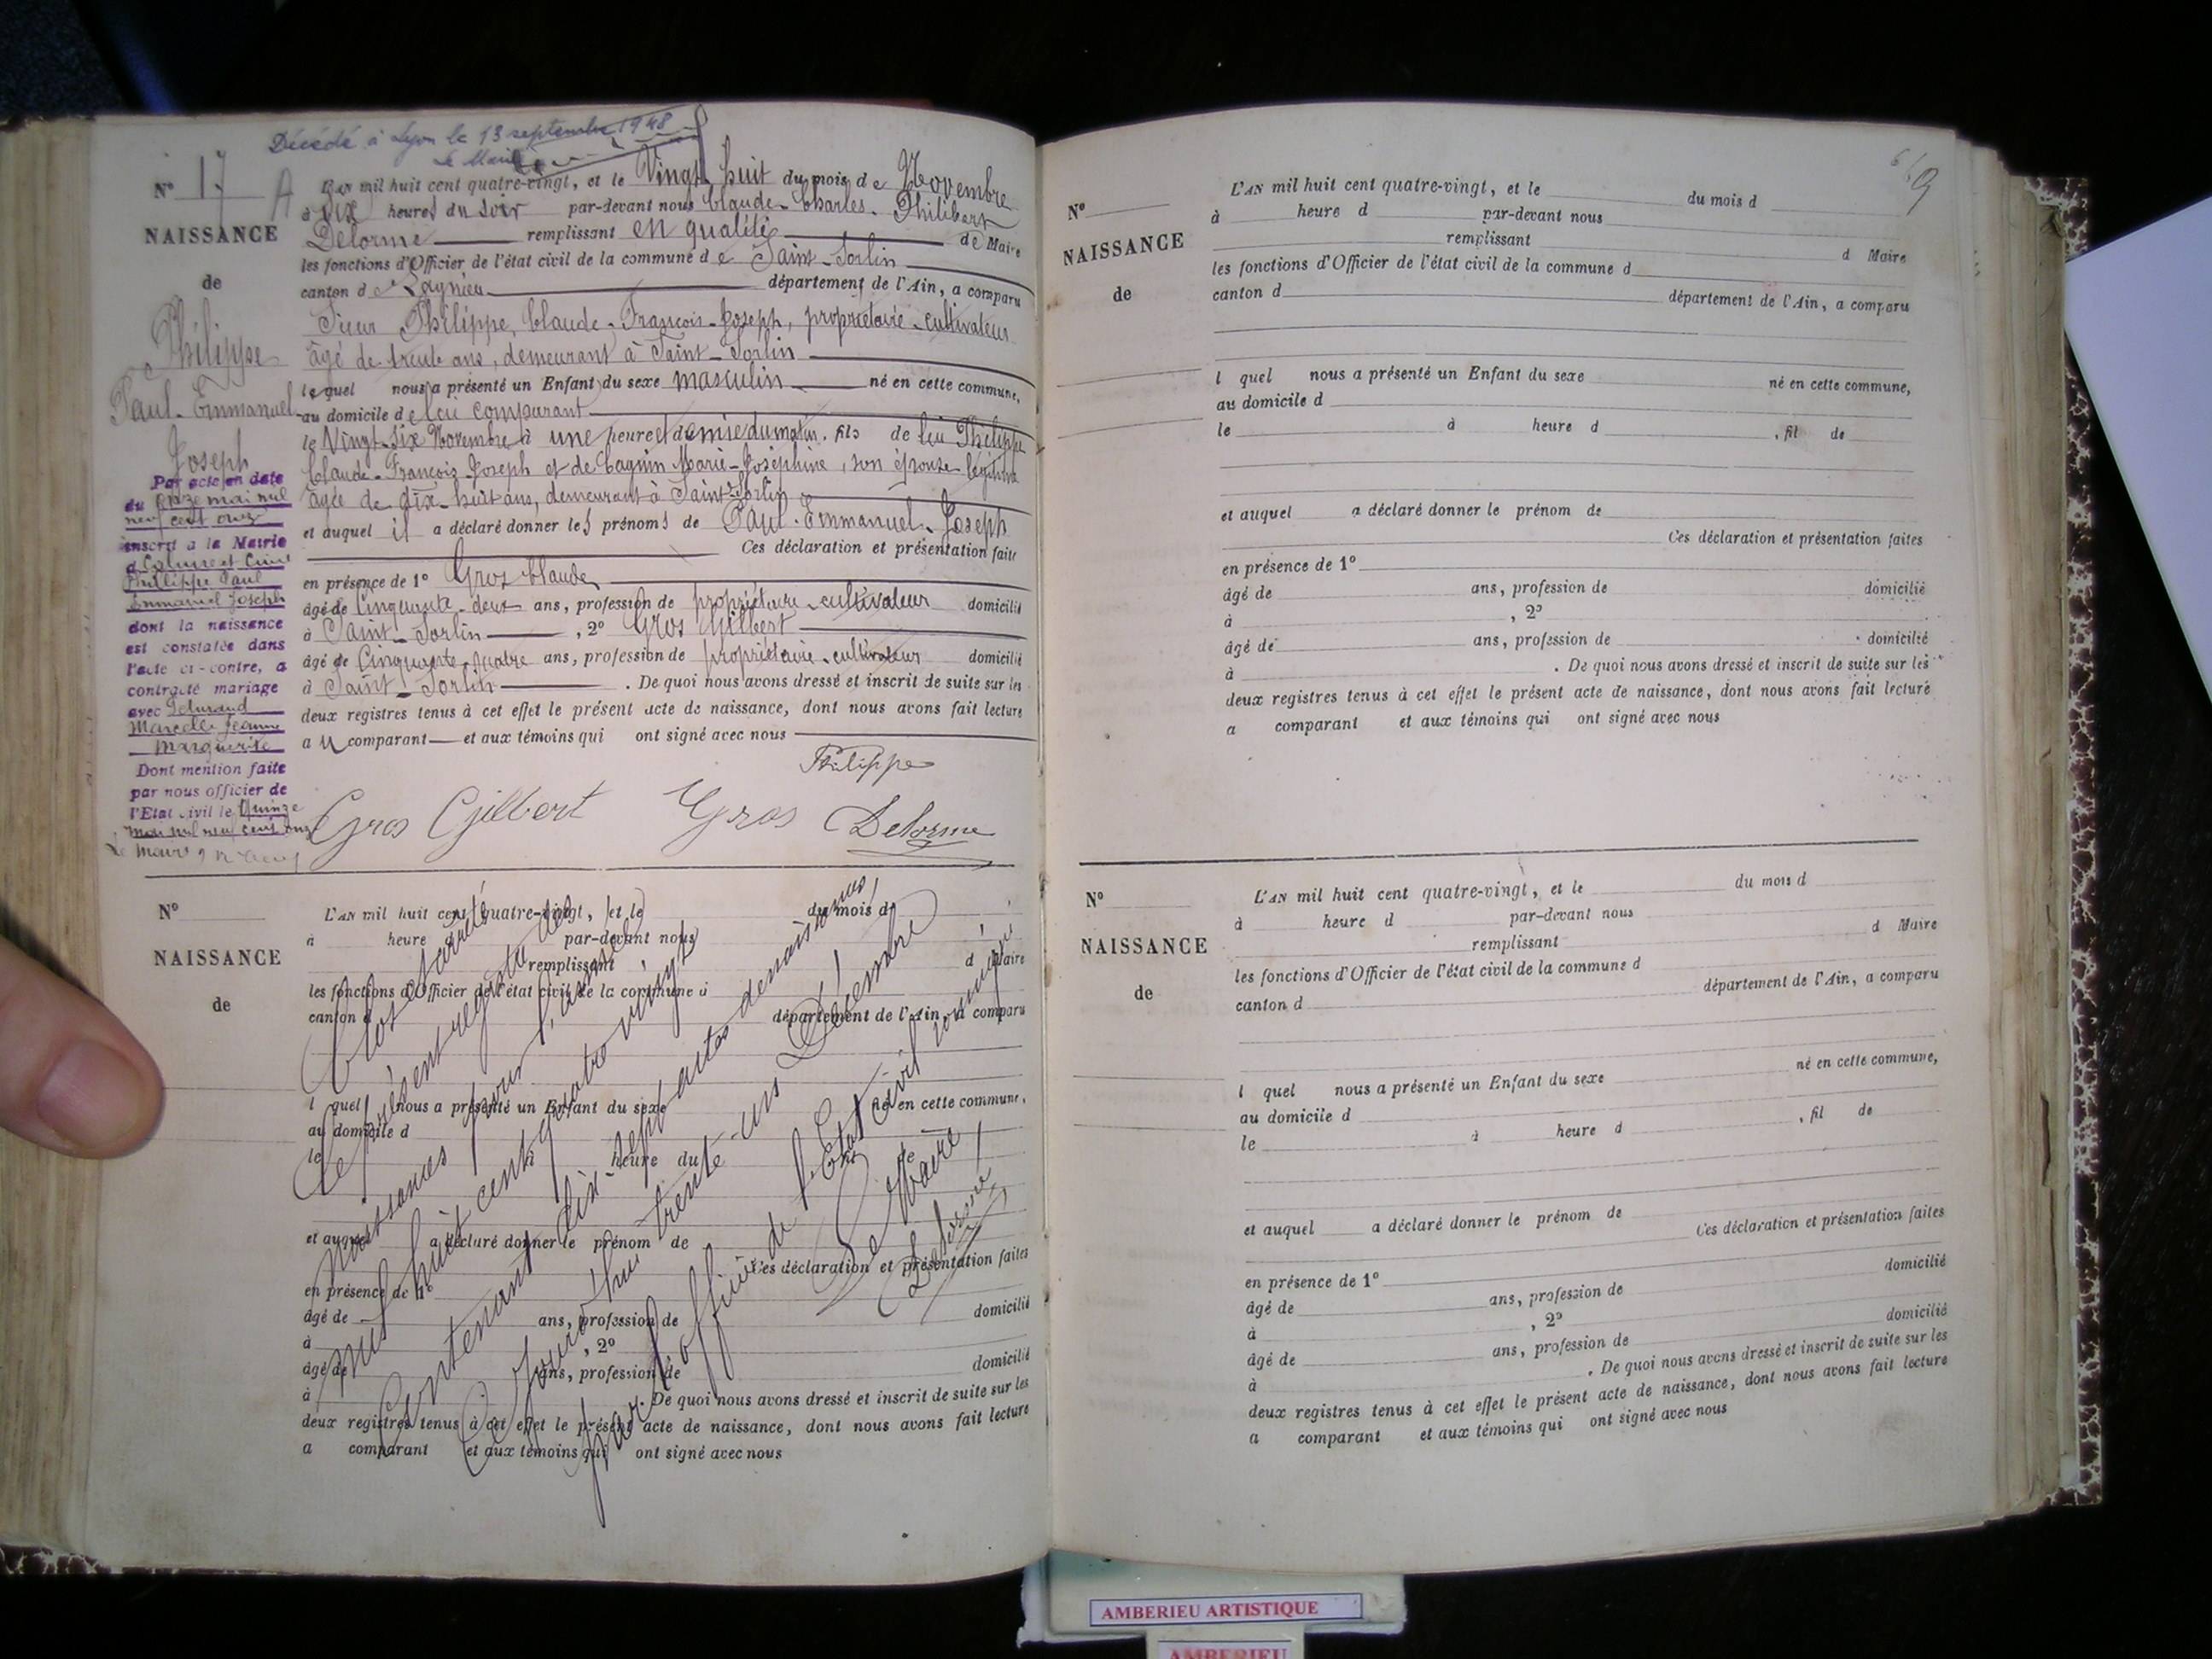 Décédé à Lyon le 13 septembre 1948
Le Maire
N° 17
NAISSANCE
de
Philippe
Paul-Emmanuel
Joseph
Par acte en date
du onze mai mil
neuf cent onze
inscrit à la Mairie
d Caluire et Cuire
Philippe Paul
Emmanuel Joseph
dont la naissance
est constatée dans
l'acte ci-contre, a
contracté mariage
avec
Marcelle Jeanne
Marguerite
Dont mention faite
par nous officier de
l'Etat civil le Quinze
mai mil neuf cent onze
Le Maire
L'AN mil huit cent quatre-vingt, et le Vingt huit du mois de Novembre
à Six heures du soir par-devant nous Claude-Charles-Philibert
Delorme remplissant en qualité de Maire
les fonctions d'Officier de l'état civil de la commune de Saint-Sorlin
canton de Lagnieu département de l'Ain, a comparu
Sieur Philippe, Claude-François-Joseph, propriétaire-cultivateur
âgé de trente ans, demeurant à Saint-Sorlin
lequel nous a présenté un Enfant du sexe masculin né en cette commune,
au domicile de lui comparant
le Vingt-six Novembre à une heure et demie du matin, fils de lui Philippe
Claude-François-Joseph et de Marie-Joséphine, son épouse légitime
âgée de dix-huit ans, demeurant à Saint-Sorlin
et auquel il a déclaré donner les prénoms de Paul-Emmanuel-Joseph
Ces déclaration et présentation faites
en présence de 1° Gros Claude
âgé de Cinquante-deux ans, profession de propriétaire-cultivateur domicilié
à Saint-Sorlin, 2° Gros Gilbert
âgé de Cinquante-quatre ans, profession de propriétaire-cultivateur domicilié
à Saint-Sorlin. De quoi nous avons dressé et inscrit de suite sur les
deux registres tenus à cet effet le présent acte de naissance, dont nous avons fait lecture
a u comparant et aux témoins qui ont signé avec nous
Philippe
Gros Gilbert Gros Delorme
N°
NAISSANCE
de
L'AN mil huit cent quatre-vingt, et le du mois d
à heure d par-devant nous
remplissant d Maire
les fonctions d'Officier de l'état civil de la commune d
canton d département de l'Ain, a comparu
l quel nous a présenté un Enfant du sexe né en cette commune,
au domicile d
le à heure du fil de
et auquel a déclaré donner le prénom de
Ces déclaration et présentation faites
en présence de 1°
âgé de ans, profession de domicilié
à , 2°
âgé de ans, profession de domicilié
à . De quoi nous avons dressé et inscrit de suite sur les
deux registres tenus à cet effet le présent acte de naissance, dont nous avons fait lecture
a comparant et aux témoins qui ont signé avec nous
Clos et arrêté
le présent registre des
naissances pour l'année
mil huit cent quatre vingt
Contenant dix-sept actes de naissances,
Ce jourd'hui trente-un Décembre
par l'officier de l'Etat Civil soussigné
Le Maire
Delorme
9
N°
NAISSANCE
de
L'AN mil huit cent quatre-vingt, et le du mois d
à heure d par-devant nous
remplissant d Maire
les fonctions d'Officier de l'état civil de la commune d
canton d département de l'Ain, a comparu
l quel nous a présenté un Enfant du sexe né en cette commune,
au domicile d
le à heure d , fil de
et auquel a déclaré donner le prénom de
Ces déclaration et présentation faites
en présence de 1°
âgé de ans, profession de domicilié
à , 2°
âgé de ans, profession de domicilié
à . De quoi nous avons dressé et inscrit de suite sur les
deux registres tenus à cet effet le présent acte de naissance, dont nous avons fait lecture
a comparant et aux témoins qui ont signé avec nous
N°
NAISSANCE
de
L'AN mil huit cent quatre-vingt, et le du mois d
à heure d par-devant nous
remplissant d Maire
les fonctions d'Officier de l'état civil de la commune d
canton d département de l'Ain, a comparu
l quel nous a présenté un Enfant du sexe né en cette commune,
au domicile d
le à heure d , fil de
et auquel a déclaré donner le prénom de
Ces déclaration et présentation faites
en présence de 1°
âgé de ans, profession de domicilié
à , 2°
âgé de ans, profession de domicilié
à . De quoi nous avons dressé et inscrit de suite sur les
deux registres tenus à cet effet le présent acte de naissance, dont nous avons fait lecture
a comparant et aux témoins qui ont signé avec nous
AMBERIEU ARTISTIQUE
AMBERIEU